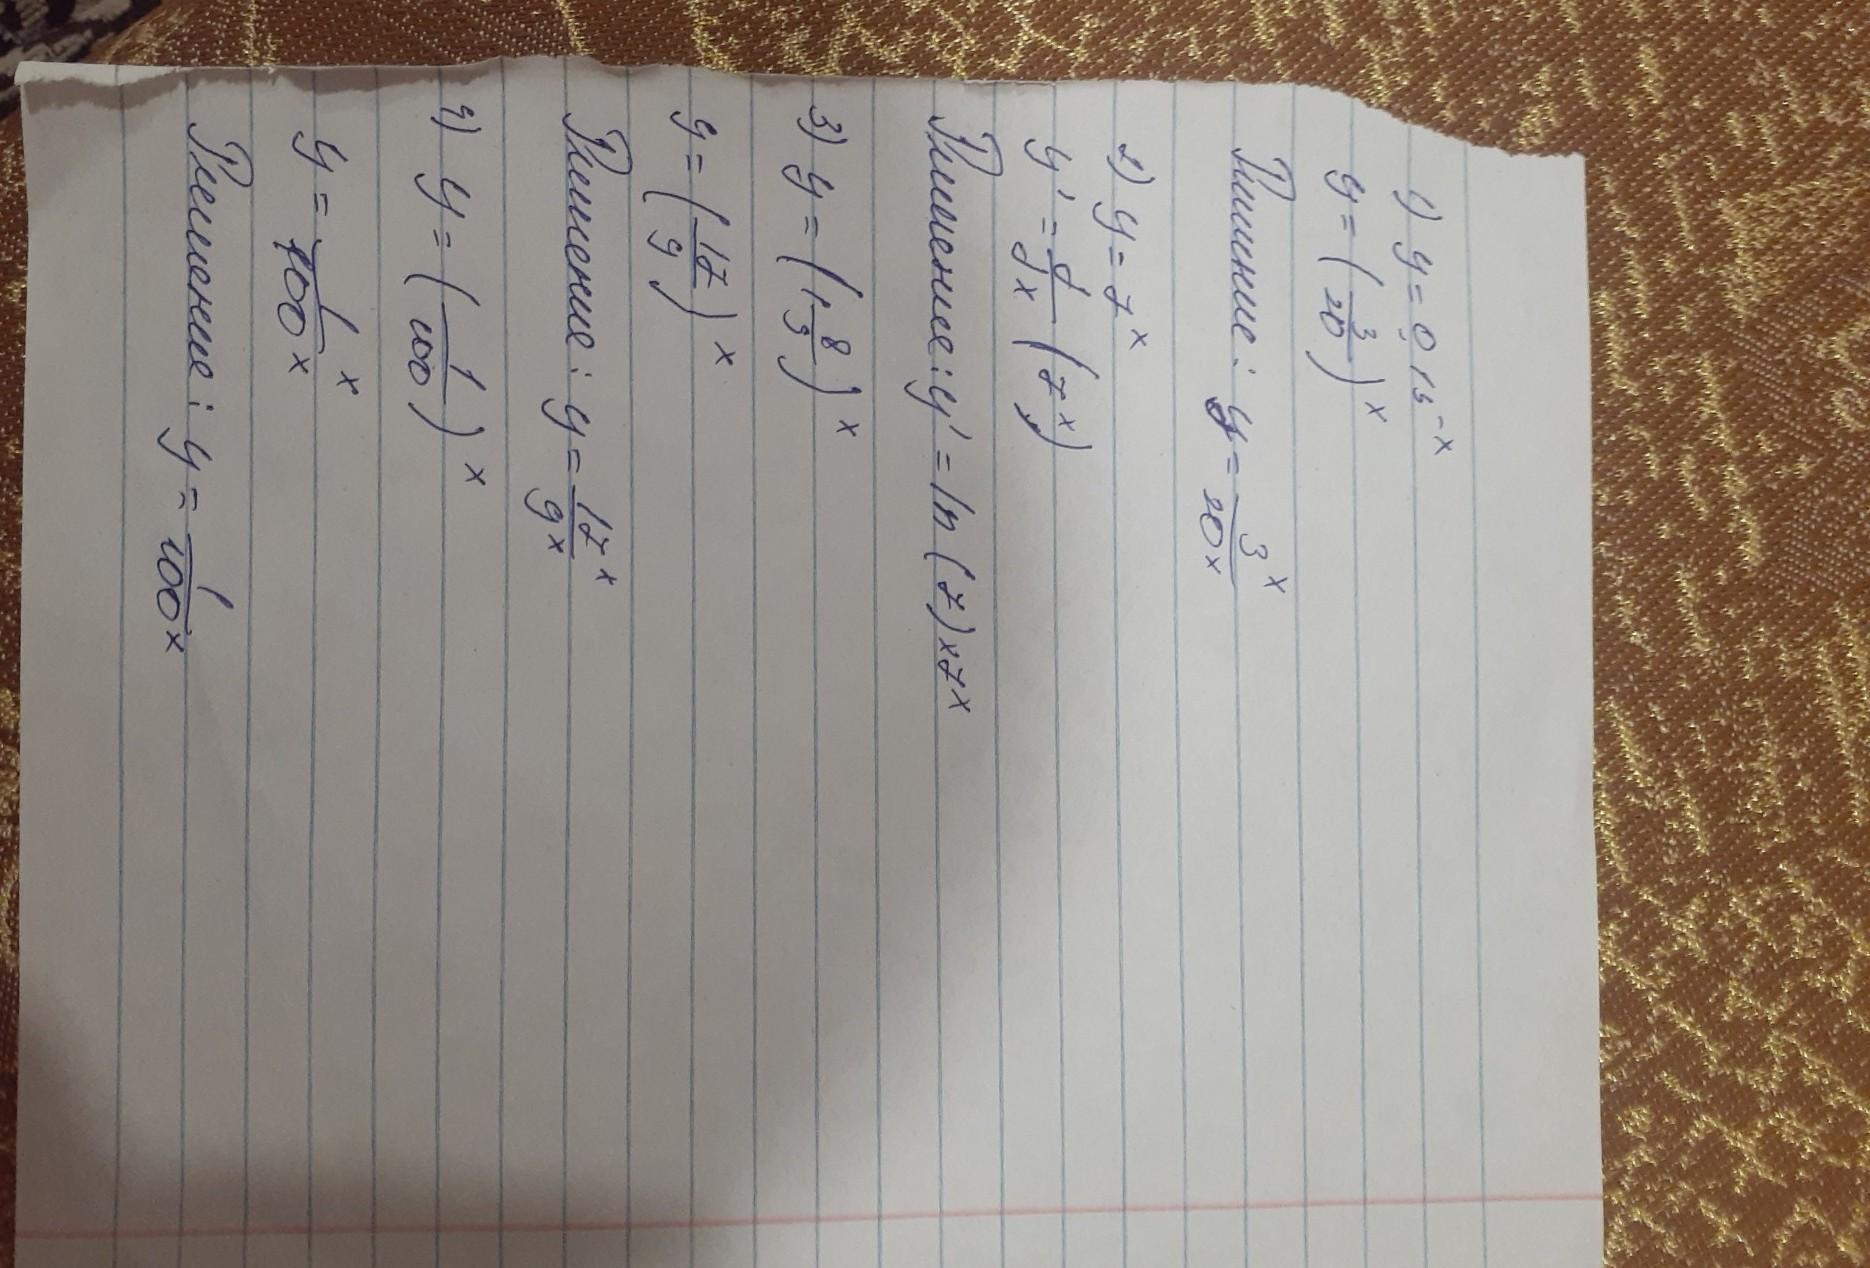 1) y = 0,15^-x
y = (3/20)^x
Решение: y = 3^x/20^x
2) y = 7^x
y' = d/dx (7^x)
Решение: y' = ln(7)×7^x
3) y = (1 8/9)^x
y = (17/9)^x
Решение: y = 17^x/9^x
4) y = (1/100)^x
y = 1^x/100^x
Решение: y = 1/100^x